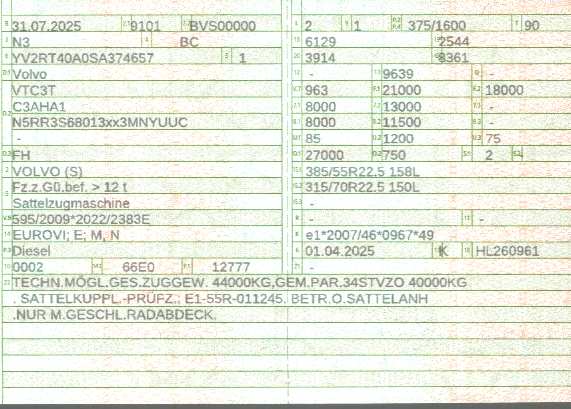 31.07.2025 9101 BVS00000 2 1 375/1600 90
N3 BC 6129 2544
YV2RT40A0SA374657 1 3914 8361
Volvo - 9639 -
VTC3T 963 21000 18000
C3AHA1 8000 13000 -
N5RR3S68013xx3MNYUUC 8000 11500 -
- 85 1200 75
FH 27000 750 2
VOLVO (S) 385/55R22.5 158L
Fz.z.Gü.bef. > 12 t 315/70R22.5 150L
Sattelzugmaschine -
595/2009*2022/2383E - -
EUROVI; E; M, N e1*2007/46*0967*49
Diesel 01.04.2025 K HL260961
0002 66E0 12777 -
TECHN.MÖGL.GES.ZUGGEW. 44000KG,GEM.PAR.34STVZO 40000KG
. SATTELKUPPL.-PRÜFZ.: E1-55R-011245. BETR.O.SATTELANH
.NUR M.GESCHL.RADABDECK.